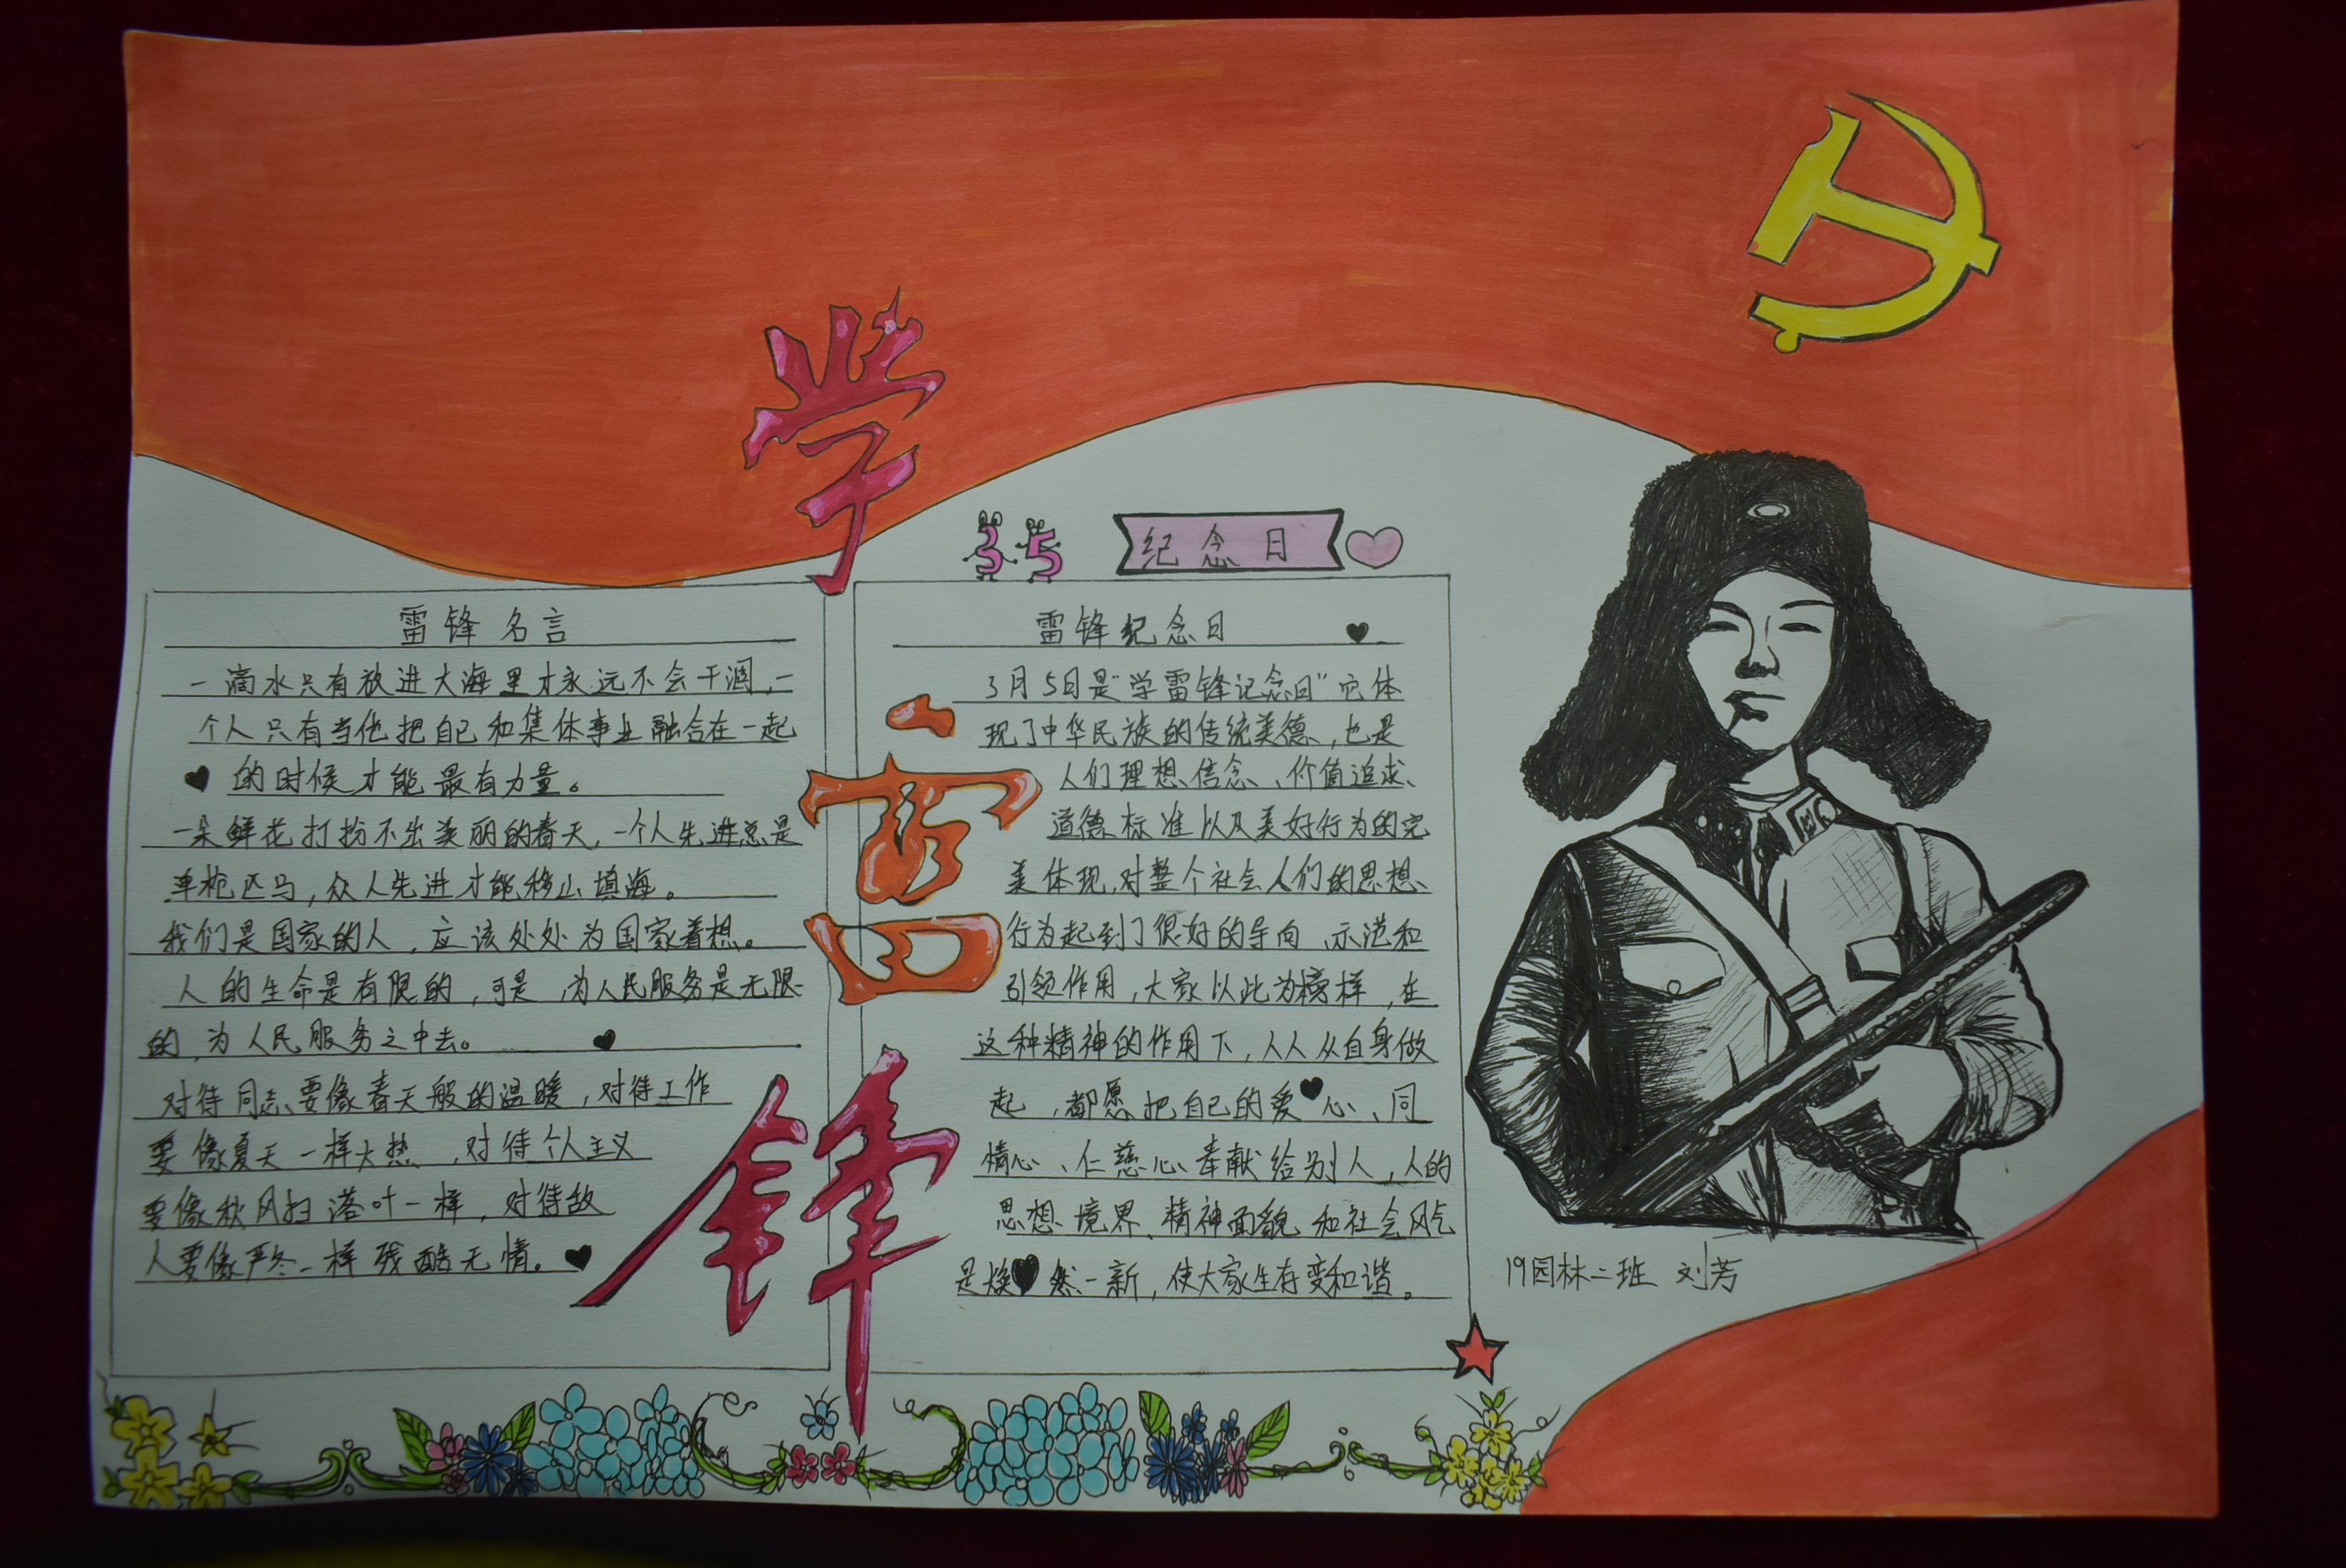 学雷锋
35 纪念日
雷锋名言
一滴水只有放进大海里才永远不会干涸,一
个人只有当他把自己和集体事业融合在一起
的时候才能最有力量。
一朵鲜花打扮不出美丽的春天,一个人先进总是
单枪匹马,众人先进才能移山填海。
我们是国家的人,应该处处为国家着想。
人的生命是有限的,可是,为人民服务是无限
的,为人民服务之中去。
对待同志要像春天般的温暖,对待工作
要像夏天一样火热,对待个人主义
要像秋风扫落叶一样,对待敌
人要像严冬一样残酷无情。
雷锋纪念日
3月5日是“学雷锋记念日”它体
现了中华民族的传统美德,也是
人们理想、信念、价值追求、
道德标准以及美好行为的完
美体现,对整个社会人们的思想、
行为起到了很好的导向、示范和
引领作用,大家以此为榜样,在
这种精神的作用下,人人从自身做
起,都愿把自己的爱心、同
情心、仁慈心奉献给别人,人的
思想境界、精神面貌和社会风气
是焕然一新,使大家生存变和谐。
19园林二班 刘芳